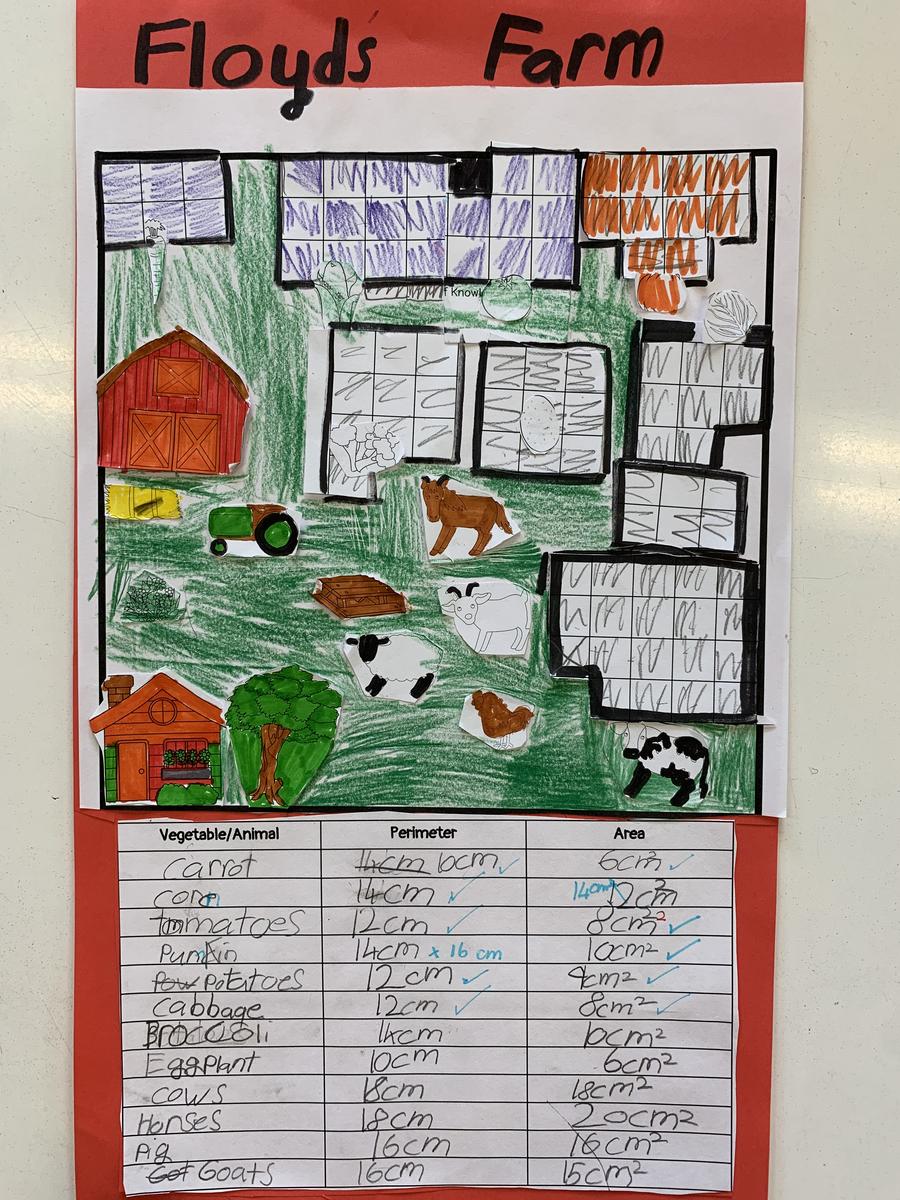 Floyds Farm
f Knowl
Vegetable/Animal Perimeter Area
Carrot 14cm 10cm 6cm²
corn 14cm 14cm² 12cm²
tomatoes 12cm 8cm²
Pumkin 14cm x 16 cm 10cm²
Pow Potatoes 12cm 9cm²
cabbage 12cm 8cm²
Broccoli 14cm 10cm²
Eggplant 10cm 6cm²
cows 18cm 18cm²
Horses 18cm 20cm²
Pig 16cm 16cm²
Got Goats 16cm 15cm²